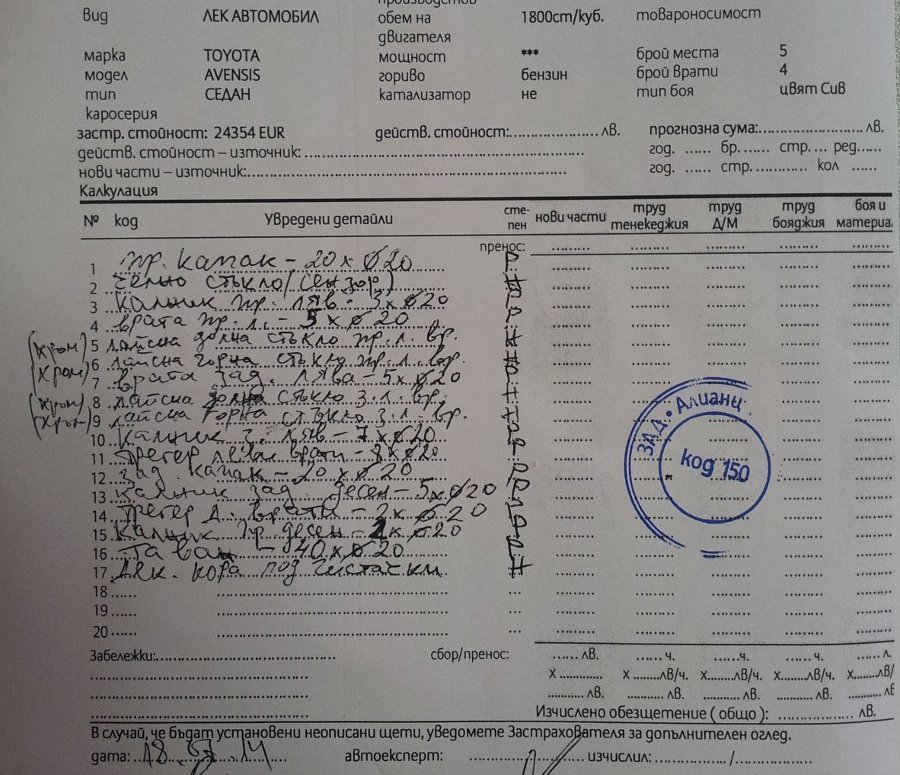 Вид ЛЕК АВТОМОБИЛ обем на 1800cm/куб. товароносимост
двигателя
марка TOYOTA мощност *** брой места 5
модел AVENSIS гориво бензин брой врати 4
тип СЕДАН катализатор не тип боя цвят Сив
каросерия
застр. стойност: 24354 EUR действ. стойност: лв. прогнозна сума: лв.
действ. стойност – източник: год. бр. стр. ред.
нови части – източник: год. стр. кол
Калкулация
№ код Увредени детайли сте-пен нови части труд тенекеджия труд Д/М труд бояджия боя и материа
пренос:
1 пр. капак - 20 x Ø20 Р
2 челно стъкло (сензор) Н
3 калник пр. ляв - 3 x Ø20 Р
4 врата пр. л. - 5 x Ø20 Р
(хром) 5 лайсна долна стъкло пр. л. вр. Н
(хром) 6 лайсна горна стъкло пр. л. вр. Н
7 врата зад. лява - 5 x Ø20 Р
(хром) 8 лайсна долна стъкло з. л. вр. Н
(хром) 9 лайсна горна стъкло з. л. вр. Н
10 калник з. ляв - 7 x Ø20 Р
11 прегер леви врати - 8 x Ø20 Р
12 зад. капак - 20 x Ø20 Р
13 калник зад. десен - 5 x Ø20 Р
14 прегер д. врати - 2 x Ø20 Р
15 калник пр. десен - x Ø20 Р
16 таван - 40 x Ø20 Р
17 дек. кора под чистачки Н
18
19
20
ЗАД • Алианц
код 150
Забележки: сбор/пренос: лв. ч. ч. ч. л.
х лв/ч. х лв/ч. х лв/ч. х лв/
лв. лв. лв. лв. лв
Изчислено обезщетение ( общо ): лв.
В случай, че бъдат установени неописани щети, уведомете Застрахователя за допълнителен оглед.
дата: автоексперт: изчислил: /